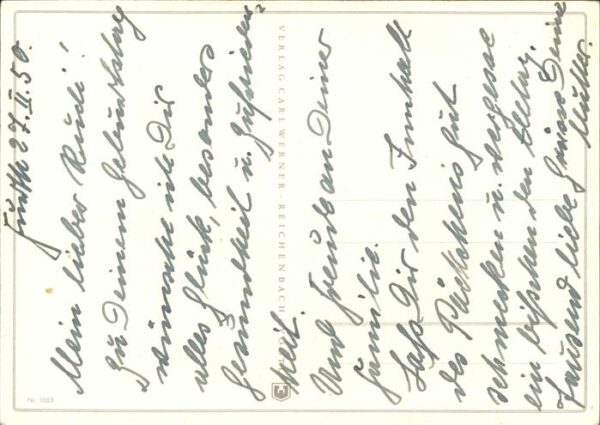 Fürth 27.II.50.
Mein lieber Rudi!
Zu Deinem Geburtstag
wünsche ich Dir
alles Glück, besonders
Gesundheit u. Zufrieden-
heit.
Und Freude an Deiner
Familie.
Laß Dir den Innhalt
des Päckchens gut
schmecken u. vergesse
ein bißchen den Alltag.
Tausend liebe Grüsse Deine
Mutter.
VERLAG CARL WERNER, REICHENBACH
Nr. 1003